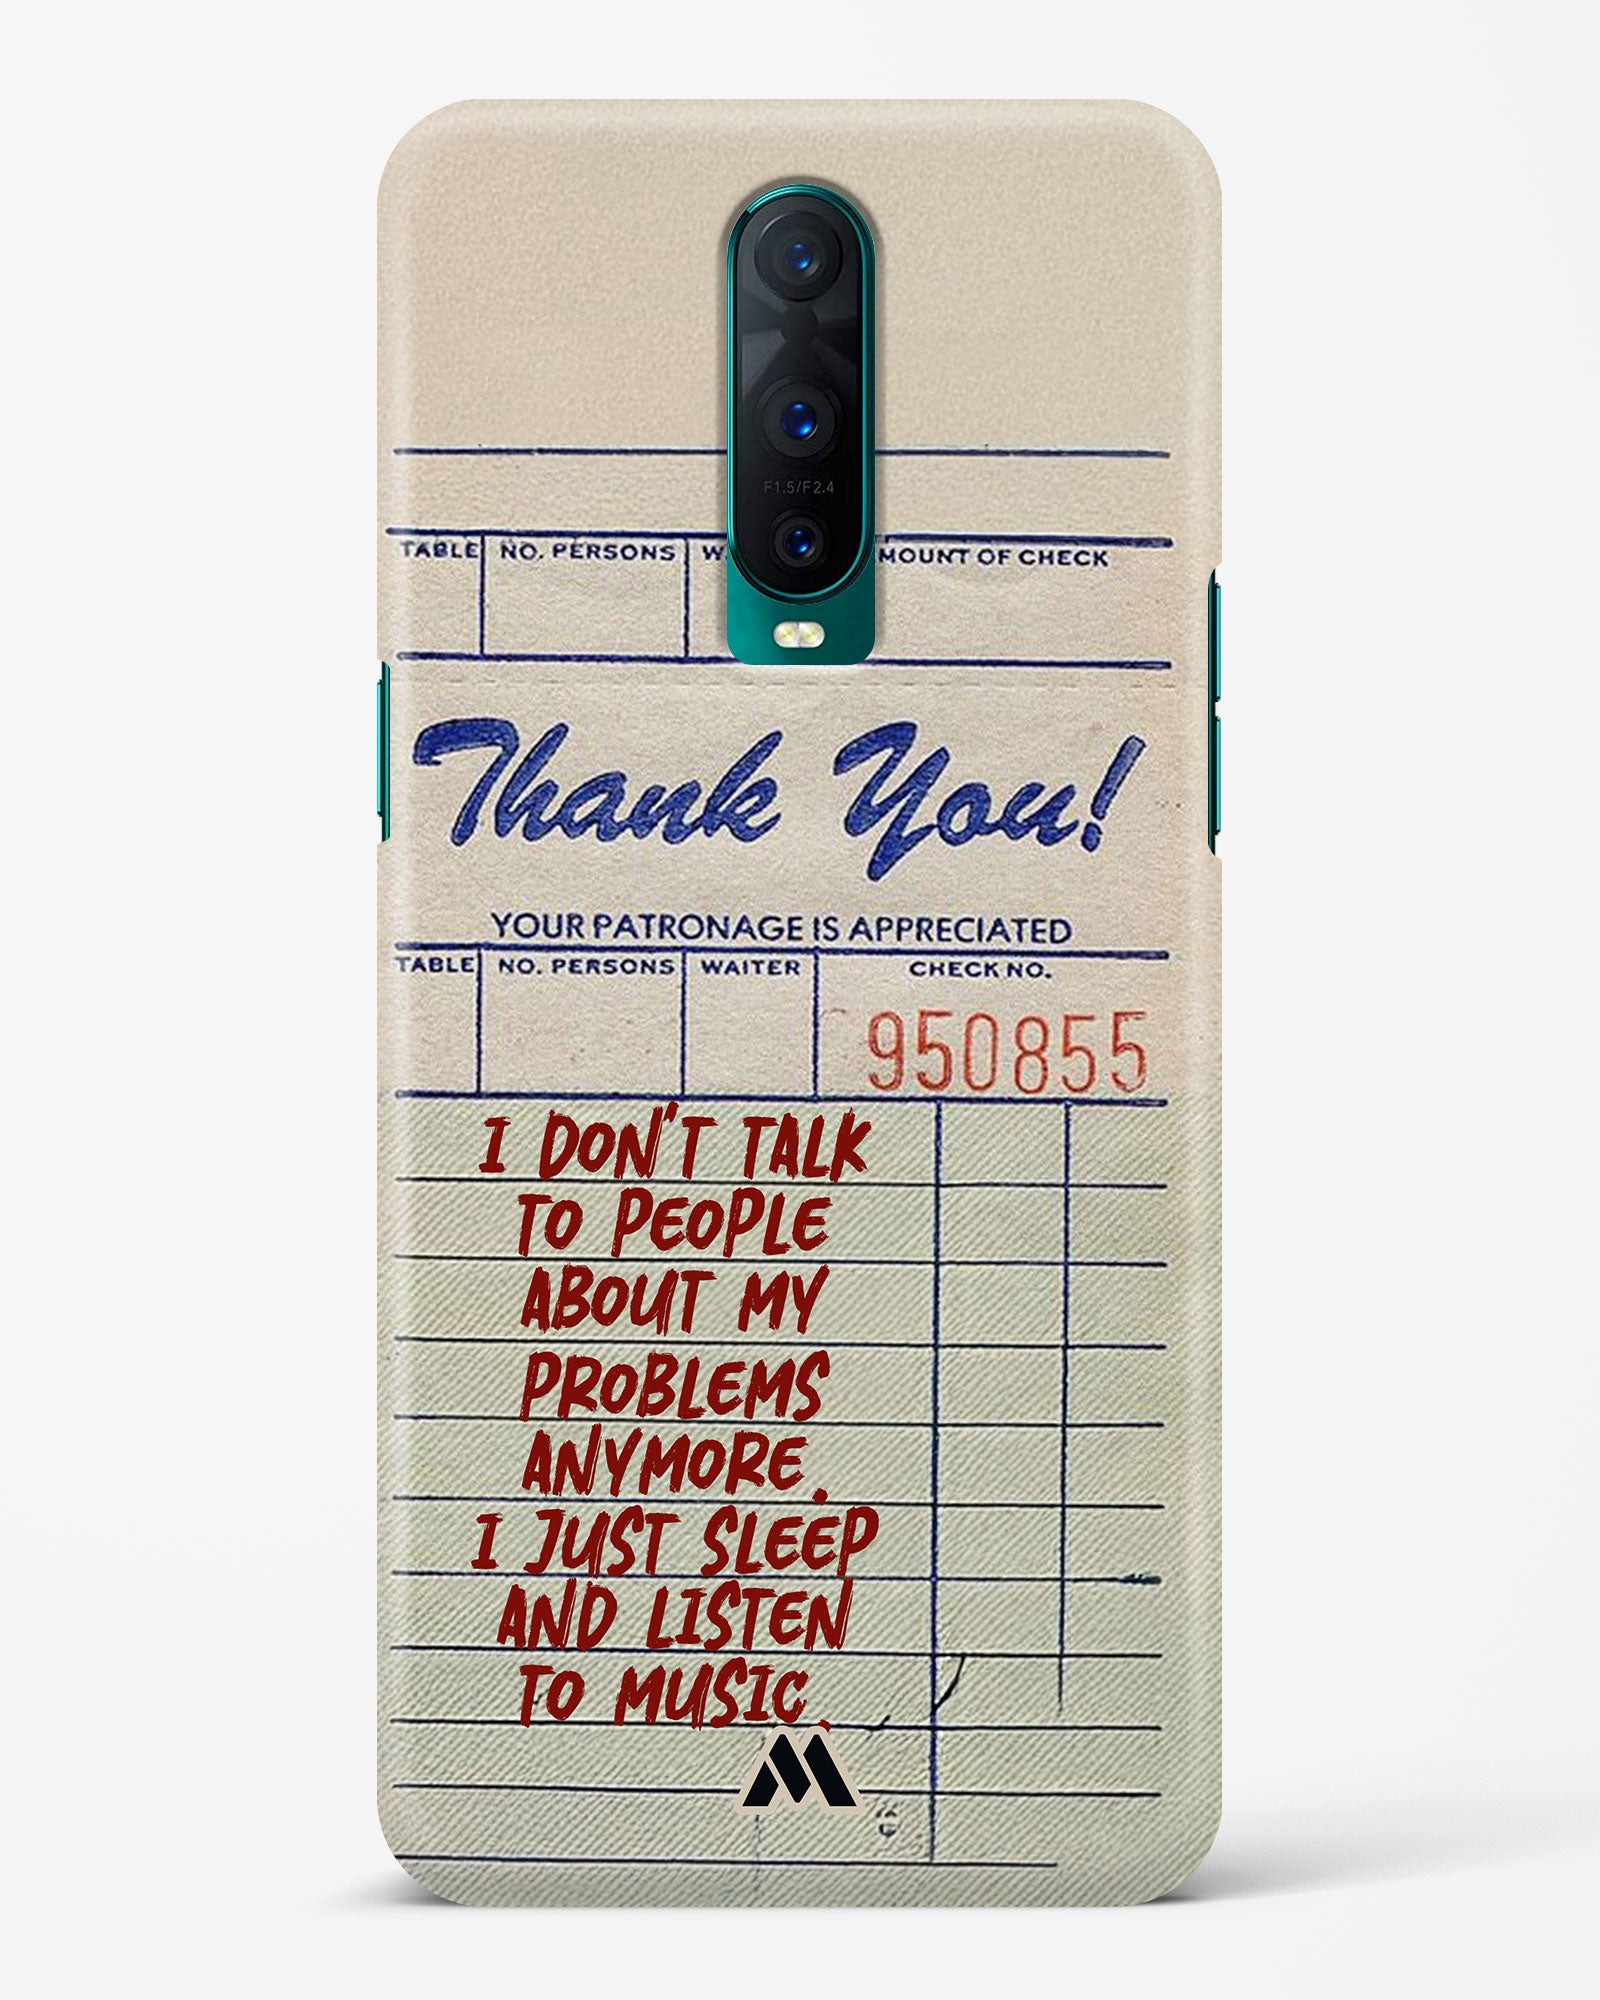 F1.5/F2.4
TABLE NO. PERSONS MOUNT OF CHECK
Thank You!
YOUR PATRONAGE IS APPRECIATED
TABLE NO. PERSONS WAITER CHECK NO.
950855
I DON'T TALK
TO PEOPLE
ABOUT MY
PROBLEMS
ANYMORE.
I JUST SLEEP
AND LISTEN
TO MUSIC.